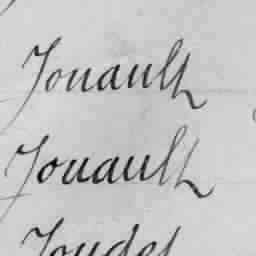 Jouault
Jouault
Joudet